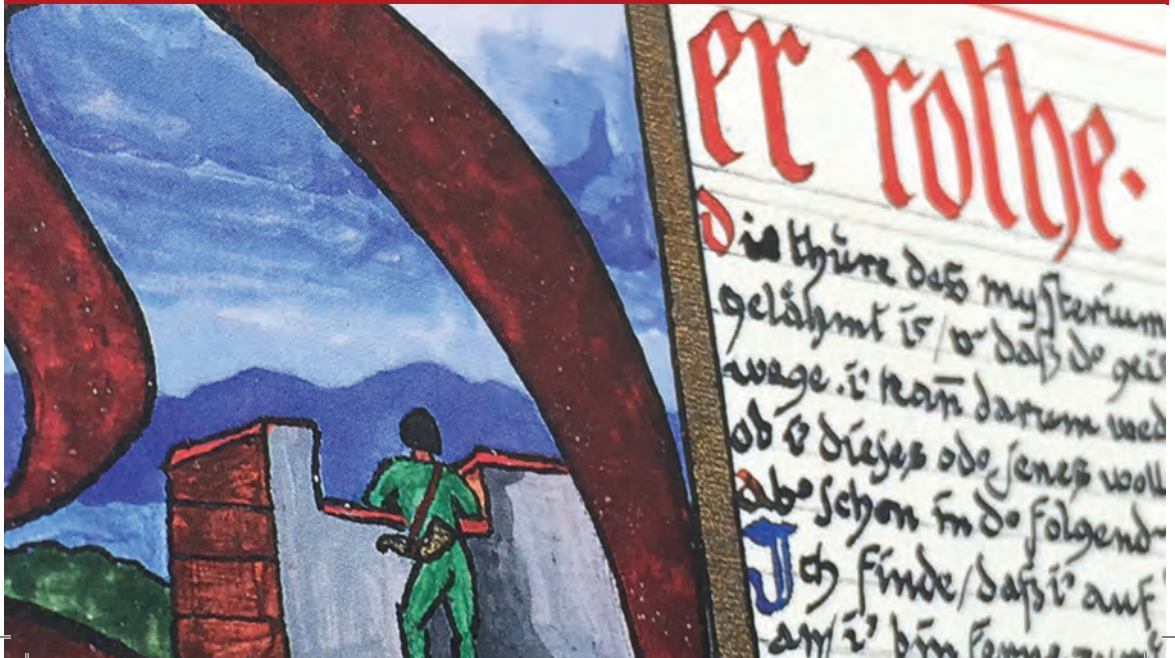 er rothe.
Die thüre deß mysterium
gelähmt is / v daß d° gei
wege. i' kañ darum wed
ob i' dieses od° jenes woll
ab° schon in d° folgend
Ich finde/daß i' auf
am/i' bin ferne